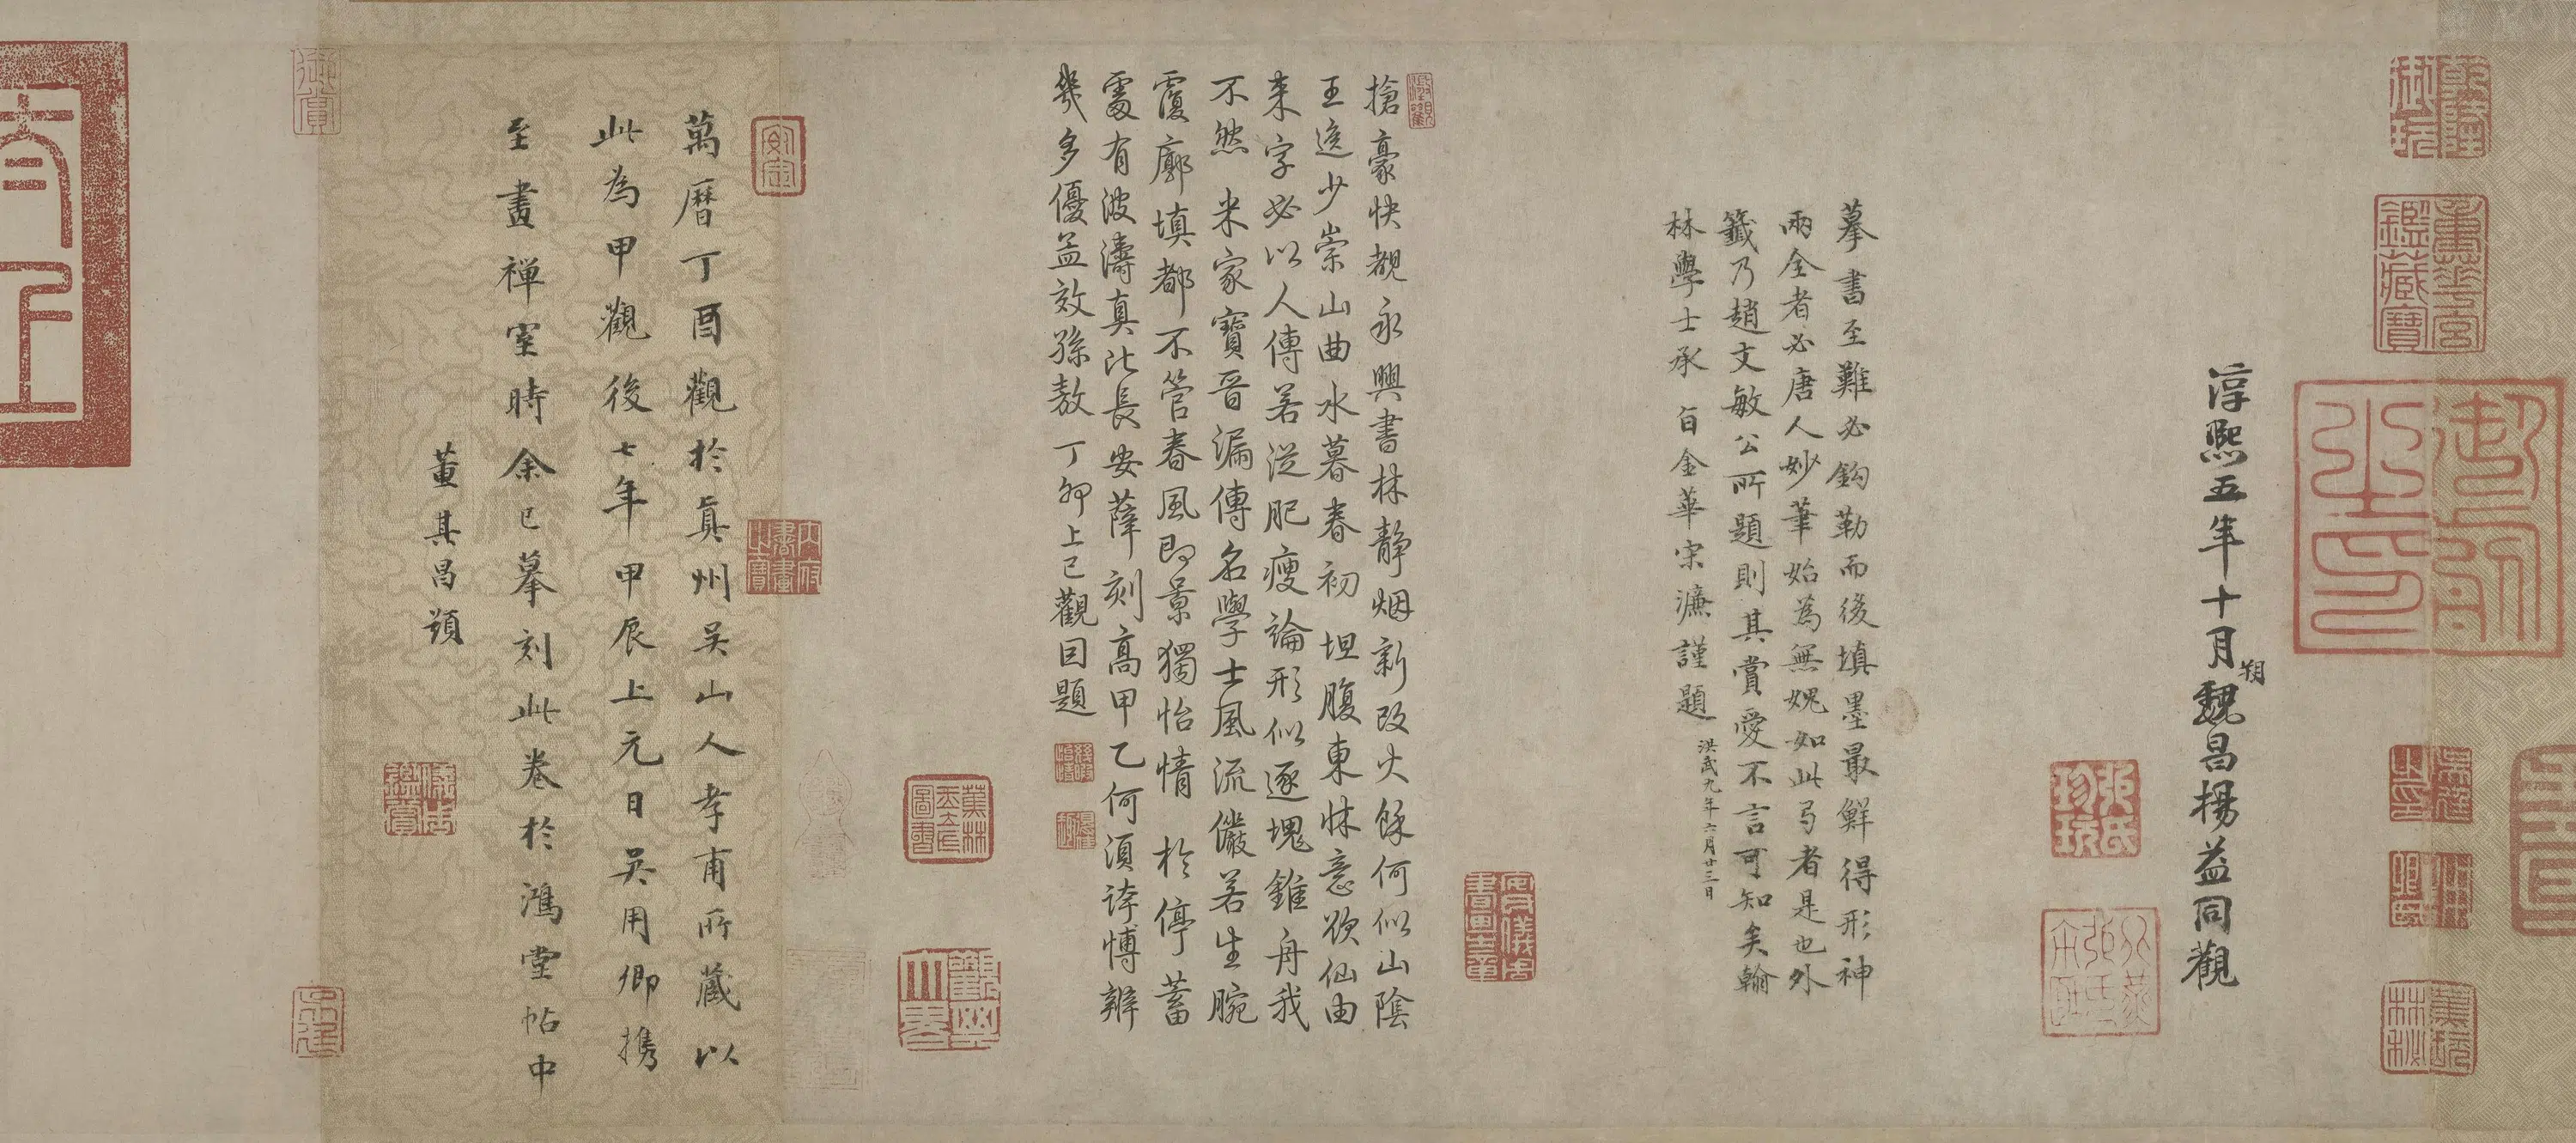 淳熙五年十月朔魏昌楊益同觀
摹書至難必鈎勒而後填墨最鮮得形神
兩全者必唐人妙筆始為無媿如此弓者是也外
籤乃趙文敏公所題則其賞愛不言可知矣翰
林學士承旨金華宋濂謹題
洪武九年六月廿三日
搶豪快覩永興書林靜烟新改火餘何似山陰
王逸少崇山曲水暮春初 坦腹東牀意欲仙由
来字必以人傳若從肥瘦論形似逐塊錐舟我
不然 米家寶晉漏傳名學士風流儼若生腕
覆廓填都不管春風即景獨怡情 於停蓄
處有波濤真比長安薛刻高甲乙何須誇博辨
幾多優孟效孫敖 丁卯上巳觀因題
萬曆丁酉觀於真州吳山人孝甫所藏以
此為甲觀後七年甲辰上元日吳用卿携
至畫禪室時余已摹刻此卷於鴻堂帖中
董其昌題
乾隆御玩
蕙華宮鑑藏寶
御府之印
張氏珍玩
蕉林玉立氏圖書
觀其大略
內府書畫之寶
安定
蕉林秘玩